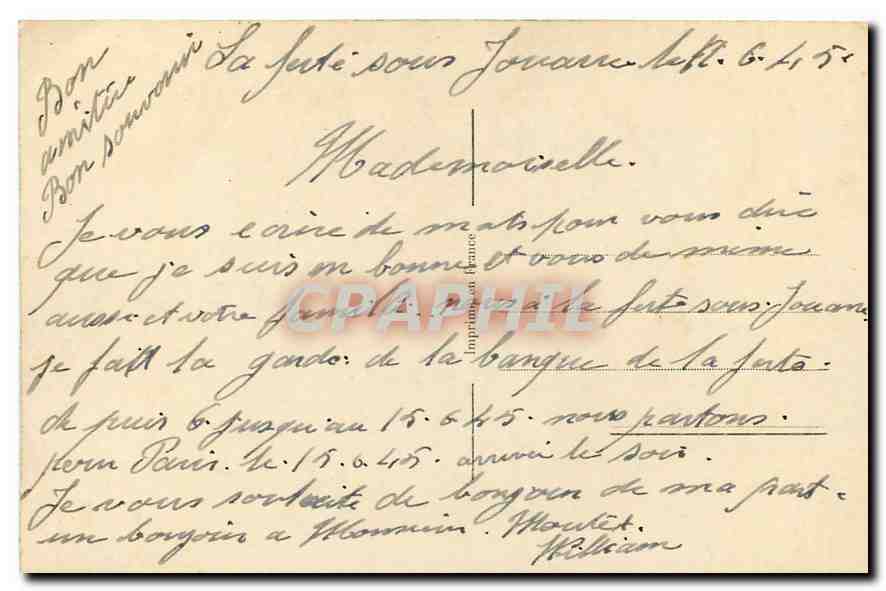 Bon
amitiée
Bon souvenir
La ferté sous Jouarre le 6.45.
Mademoiselle.
Je vous ecrire de mots pour vous dire
que je suis en bonne et vous de même
aussi et votre famille. nous a la ferte sous Jouarre
je fait la garde de la banque de la ferte.
de puis 6 jusqu'au 15.6.45. nous partons.
pour Paris. le 15.6.45. arrivée le soir.
Je vous souhaite de bonjour de ma part.
un bonjour a Monsieur. Moutet.
William
Imprimé en France
CPAPHIL